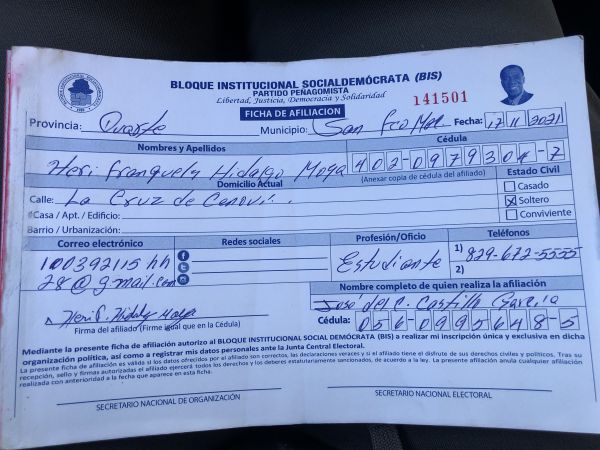 BLOQUE INSTITUCIONAL SOCIALDEMÓCRATA (BIS)
PARTIDO PEÑAGOMISTA
Libertad, Justicia, Democracia y Solidaridad
141501
FICHA DE AFILIACION
Provincia: Duarte Municipio: San Fco Mac Fecha: 17 11 2021
Nombres y Apellidos Cédula
Heri Franquely Hidalgo Moya 402-0979304-7
Domicilio Actual (Anexar copia de cédula del afiliado) Estado Civil
Calle: La Cruz de Cenoví. Casado
#Casa / Apt. / Edificio: Soltero
Barrio / Urbanización: Conviviente
Correo electrónico Redes sociales Profesión/Oficio Teléfonos
100392115 hh Estudiante 1) 829-672-5555
28@gmail.com 2)
Nombre completo de quien realiza la afiliación
Jose del C. Castillo Garcia
Heri F. Hidalgo Moya Cédula: 056-0995648-5
Firma del afiliado (Firme igual que en la Cédula)
Mediante la presente ficha de afiliación autorizo al BLOQUE INSTITUCIONAL SOCIAL DEMÓCRATA (BIS) a realizar mi inscripción única y exclusiva en dicha
organización política, así como a registrar mis datos personales ante la Junta Central Electoral.
La presente ficha de afiliación es válida si los datos ofrecidos por el afiliado son correctos, las declaraciones veraces y si el afiliado tiene el disfrute de sus derechos civiles y políticos. Tras su
recepción, sello y firmas autorizadas el afiliado ejercerá todos los derechos y los deberes estatutariamente sancionados, de acuerdo a la ley. La presente afiliación anula cualquier afiliación
realizada con anterioridad a la fecha que aparece en esta ficha.
SECRETARIO NACIONAL DE ORGANIZACIÓN SECRETARIO NACIONAL ELECTORAL